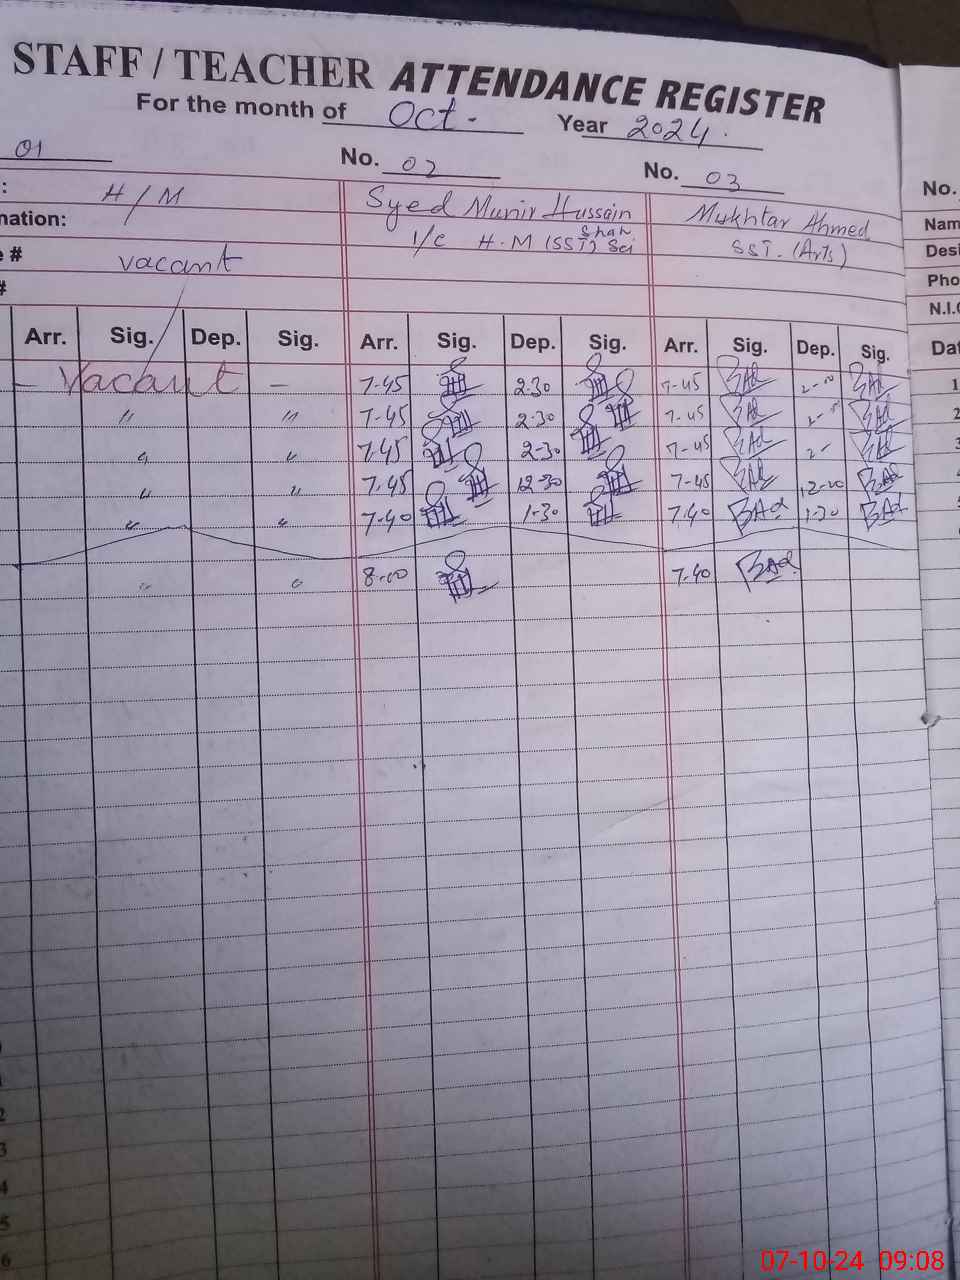 STAFF / TEACHER ATTENDANCE REGISTER
For the month of Oct. Year 2024.
01 No. 02 No. 03 No.
: H/M Syed Munir Hussain Shah Mukhtar Ahmed Nam
nation: I/C H.M (SST) Sci SST. (Arts) Desi
e # vacant Pho
# N.I.C
Arr. Sig. Dep. Sig. Arr. Sig. Dep. Sig. Arr. Sig. Dep. Sig. Dat
- Vacant - 7-45 2-30 7-45 1
" " 7-45 2-30 7-45 2
" " 7-45 2-30 7-45 3
" " 7-45 12-30 7-45 12-
" " 7-40 1-30 7-40 1-30
" " 8-00 7-40
2
3
4
5
6
07-10-24 09:08